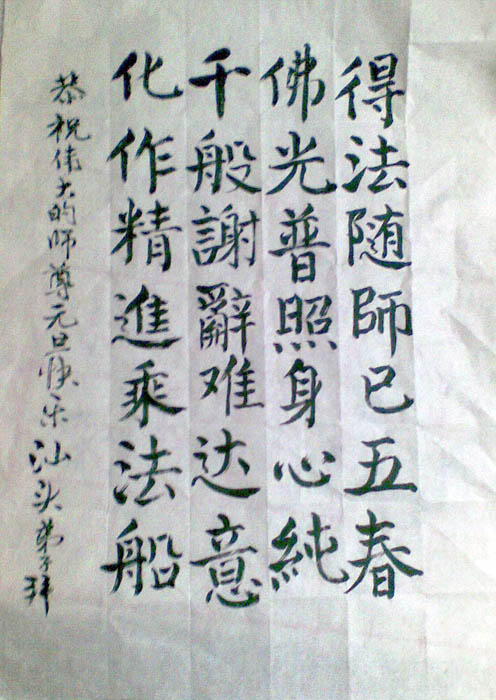 得法随師已五春
佛光普照身心純
千般謝辭难达意
化作精進乘法船
恭祝伟大的师尊元旦快乐
汕头弟子拜